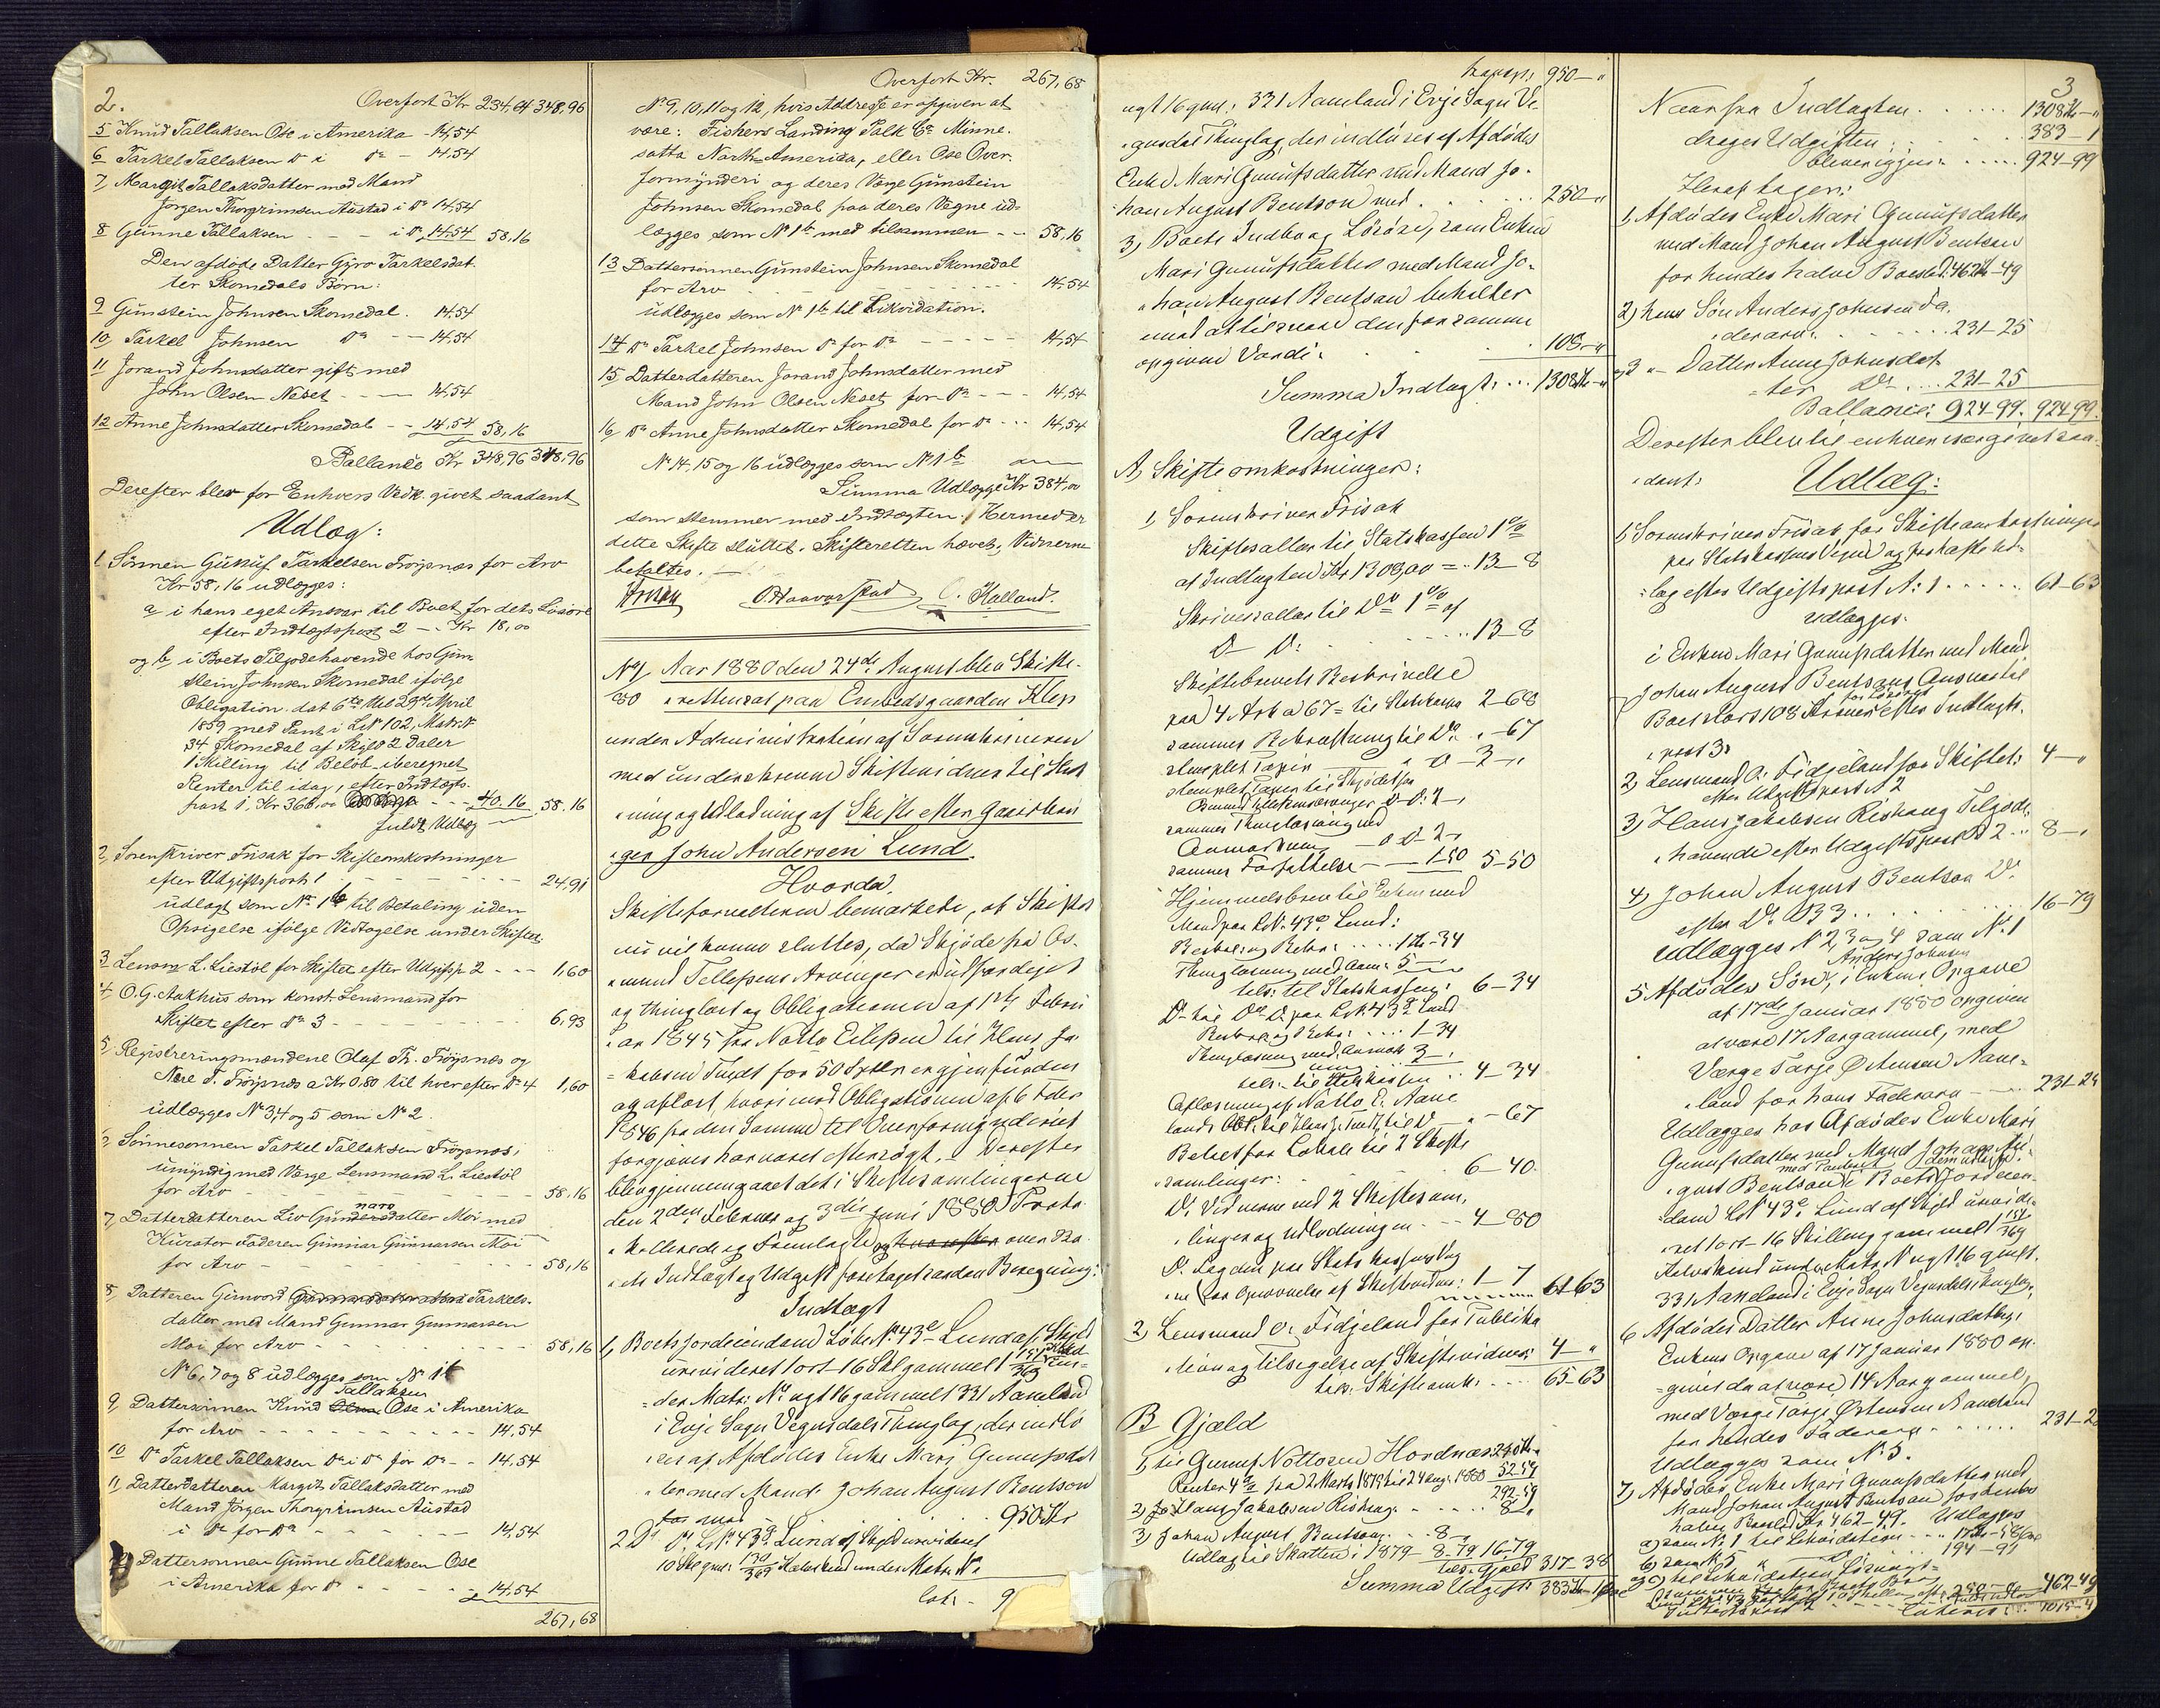 2.
Overført Kr 234,64 348,96
5 Knud Tallaksen Ose i Amerika - 14,54
6 Tarkel Tallaksen Do i Do - 14,54
7, Margit Tallaksdatter med Mand
Jørgen Thorgrimsen Austad i Do 14,54
8 Gunne Tallaksen - - - i Do 14,54 58,16
Den afdøde Datter Gyro Tarkelsdat-
ter Skomedals Børn:
9 Gunstein Johnsen Skomedal. 14,54
10, Tarkel Johnsen Do - - 14,54
11 Jorand Johnsdatter gift med
John Olsen Neset - - - 14,54
12 Anne Johnsdatter Skomedal - - 14,54 58,16
Ballance Kr 348,96 348,96
Derefter blev for Enhvers Vedk. givet saadant
Udlæg:
1 Sønnen Gunuf Tarkelsen Frøysnæs for Arv
Kr 58,16 udlægges:
a i hans eget Ansvar til Boet for dets Løsøre
efter Indtægtspost 2 - Kr 18,00
og b, i Boets Tilgodehavende hos Gun-
stein Johnsen Skomedal ifølge
Obligation dat 6te thl 29de April
1859 med Pant i LNo 102, Matr.No
34 Skomedal af Skyld 2 Daler
1 Skilling til Beløb iberegnet
Renter til idag, efter Indtægts-
post 1, Kr 366,00 - - - 40,16 58,16
fuldt Udlæg
2, Sorenskriver Frisak for Skifteomkostninger
efter Udgiftspost 1 - - - 24,91
udlagt som No 1b til Betaling uden
Opsigelse ifølge Vedtagelse under Skiftet.
3 Lensm L. Liestøl for Skiftet efter Udgifsp 2 - - - 1,60
4 O. G. Aakhus som konst. Lensmand for
Skiftet efter do 3 - - - 6,93
5, Registreringsmændene Olaf Th. Frøysnæs og
Nere T. Frøysnæs a Kr 0.80 til hver efter Do 4 1,60
udlægges No 3, 4 og 5 som No 2.
6 Sønnesønnen Tarkel Tallaksen Frøysnæs,
umyndig med Værge Lensmand L. Liestøl
for Arv - - - 58,16
7, Datterdatteren Liv Gunnarsdatter Moi med
Kurator Faderen Gunnar Gunnarsen Moi
for Arv - - - 58,16
8, Datteren Gunvord Tarkels-
datter med Mand Gunnar Gunnarsen
Moi for Arv - - - 58,16
No 6, 7 og 8 udlægges som No 1b
Tallaksen
9, Dattersønnen Knud Ose i Amerika
for Arv - - - 14,54
10 Do Tarkel Tallaksen Do i Do for Do - - 14,54
11, Datterdatteren Margit Tallaksdatter med
Mand Jørgen Thorgrimsen Austad
i Do for Do - - - 14,54
12 Dattersønnen Gunne Tallaksen Ose
i Amerika for Do - - - 14,54
267,68
Overført Kr. 267,68
No 9, 10, 11 og 12, hvis Addresse er opgiven at
være: Fishers Landing Polk Co. Minne-
sotta North-Amerika, eller Ose Over-
formynderi og deres Værge Gunstein
Johnsen Skomedal paa deres Vegne ud-
lægges som No 1b med tilsammen - - 58,16
13 Dattersønnen Gunstein Johnsen Skomedal
for Arv - - - 14,54
udlægges som No 1b til Likvidation.
14 Do Tarkel Johnsen Do for Do - - - 14,54
15 Datterdatteren Jorand Johnsdatter med
Mand John Olsen Neset for Do - - - 14,54
16 Do Anne Johnsdatter Skomedal for Do - - - 14,54
No 14, 15 og 16 udlægges som No 1b
Summa Udlægge Kr 384,00
som stemmer med Indtægten. Hermed er
dette Skifte sluttet. Skifteretten hævet, Vidnerne
betaltes.
Frisak O. Haavorstad O. Kalland.
No 1/80 Aar 1880 den 24de August blev Skifte-
retten sat paa Embedsgaarden Klep
under Administration af Sorenskriveren
med underskrevne Skiftevidner til Slut-
ning og Udlodning af Skifte efter Gaardbru-
ger John Andersen Lund.
Hvorda,
Skifteforvalteren bemærkede, at Skiftet
nu vil kunne sluttes, da Skjøde fra Os-
mund Tellefsens Arvinger er udfærdiget
og thinglæst og Obligationen af 1ste Febru-
ar 1845 fra Notto Eilefsen til Hans Ja-
kobsen Tveit for 50 Spdlr er gjenfunden
og aflæst, hvorimod Obligationen af 6 Febr
1846 fra den Samme til Overformynderiet
forgjæves har været eftersøgt. - Derefter
blev gjennemgaaet det i Skiftesamlingerne
den 2den Februar og 3die Juni 1880 Proto-
kollerede og Fremlagte og over Bo-
ets Indtægt og Udgift foretaget saadan Beregning:
Indtægt
1, Boets Jordeiendom Løbe No. 43e Lund af Skyld
urevideret 1 ort 16 Sk gammel
der Matr: No ugt 16 gammelt 331 Aamland
i Evje Sogn Vegusdals Thinglag, der indlø-
ses af Afdødes Enke Mari Gunufsdat-
ter med Mand Johan August Bentson
for med 950 Kr
2 Do Do LNo 43d Lund af Skyld urevideret
10 Sk gml: 130/369 Halvskind under Matr. No
lat. 9
transp: 950 - "
ugt 16 gml: 331 Aamland i Evje Sogn Ve-
gusdal Thinglag, der indløses af Afdødes
Enke Mari Gunufsdatter med Mand Jo-
han August Bentson med . . . 250 - "
3, Boets Indbo og Løsøre, som Enken
Mari Gunufsdatter med Mand Jo-
han August Bentsen beholder
mod at tilsvare den for samme
opgivne Værdi: . . . 108 - "
Summa Indtægt: . . . 1308 Kr - "
Udgift
A, Skifteomkostninger:
1, Sorenskriver Frisak
Skiftesallar til Statskassen 1 %
af Indtægten Kr 1308,00 = . . 13 - 8
Skriversallar til Do 1 % af
Do Do: . . . 13 - 8
Skiftebrevets Beskrivelse
paa 4 Ark a 67 = til Statskassen 2 - 68
sammes Bekræftning til Do . - 67
stemplet Papir - - " 0 - 3 - "
stemplet Papir til Skjødet fra
Osmund Tellefsens Arvinger 0 - 0: 2 - "
sammes Thinglæsning med
Anmærkning - 0 - 0 - 2 -
sammes Forfattelse - - 1 - 50 5 - 50
Hjemmelsbrev til Enken med
Mand paa LNo. 43e Lund:
Beskr: og Bekr: . . . 1 Kr - 34
Thinglæsning med Anm: 5
tils: til Statskassen: 6 - 34
Do til Do Do paa LNo 43d Lund
Beskr. og Bekr: . . . 1 - 34
Thinglæsning med Anmærk 3 -
tils: til Statskassen . . 4 - 34
Aflæsning af Notto E. Aam-
lands Obl: til Hans J. Tveit til Do . - 67
Betalt for Lokale til 2 Skifte-
samlinger: . . . 6 - 40.
Do Vidnerne ved 2 Skiftesam-
linger og Udlodningen - - 4 - 80
Do Lagden paa Statskassens Veg-
ne for Opnævnelse af Skiftevidner: 1 - 7 61 - 63
2, Lensmand O. Fidjeland for Publika-
tion og Tilsigelse af Skiftevidner: 4 - "
tils: Skifteomk: . . . 65 - 63
B Gjæld
1, til Gunuf Nottosen Hordnæs 240 Kr "
Renter 4 % fra 2 Marts 1879 til 24 Aug: 1880 52.59
292 - 59
2, Hans Jakobsen Rishaug: . . . 8 "
3, Johan August Bentson: . . . 8 -
Udlæg til Skatten i 1879 - 8.79 16 - 79
tils. Gjæld 317 - 38
Summa Udgift: 383 Kr - 1 Øre
3
Naar fra Indtægten . . . 1308 Kr - "
drages Udgiften: . . . 383 - 1
bliver igjen: . . . 924 - 99
Heraf tager:
1, Afdødes Enke Mari Gunufsdatter
med Mand Johan August Bentsen
for hendes halve Boeslod: 462 Kr - 49
2, hans Søn Anders Johnsen Fa-
derarv: . . . 231 - 25
og 3 " - Datter Anne Johnsdat-
ter Do . . . 231 - 25
Ballance: 924 - 99. 924 99.
Derefter blev til enhver især givet saa-
dant:
Udlæg:
1, Sorenskriver Frisak for Skifteomkostninger
paa Statskassens Vegne og forskudte Ud-
læg efter Udgiftspost A: 1 . . . 61 - 63
udlægges.
i Enken Mari Gunufsdatter med Mand
Johan August Bentsens Ansvar til
for Løsøret
Boet stort 108 Kroner efter Indtægts-
post 3:
2, Lensmand O. Fidjeland for Skiftet: 4 - "
efter Udgiftspost A 2
3, Hans Jakobsen Rishaug Tilgode-
havende efter Udgiftspost B 2 . . 8 - "
4, Johan August Bentsen Do.
efter Do. B 3 . . . 16 - 79
udlægges No 2, 3 og 4 som No. 1
Anders Johnsen
5 Afdødes Søn, i Enkens Opgave
af 17de Januar 1880 opgiven
at være 17 Aar gammel, med
Værge Tarje Østensen Aam-
land for hans Faderarv - - 231 - 25
Udlægges hos Afdødes Enke Mari
Gunufsdatter med Mand Johan Au-
med Panteret
gust Bentsen i Boets Jordeien-
dom LNo 43e Lund af Skyld urevide-
ret 1 ort - 16 Skilling gammel
Halvskind under Matr. No ugt. 16 gml.
331 Aamland i Evje Sogn Vegusdals Thinglag.
6 Afdødes Datter Anne Johnsdatter,
Enkens Opgave af 17 Januar 1880 op-
givet da at være 14 Aar gammel,
med Værge Tarje Østensen Aamland
for hendes Faderarv . . . 231 - 2
Udlægges som No. 5.
7, Afdødes Enke Mari Gunufsdatter med
Mand Johan August Bentsen for hendes
halve Boeslod Kr 462 - 49. Udlægges
a) som No. 1 til Likvidation . . . 17 Kr - 58 Øre
b) som No 5 " Do . . . 194 - 91
462 - 49